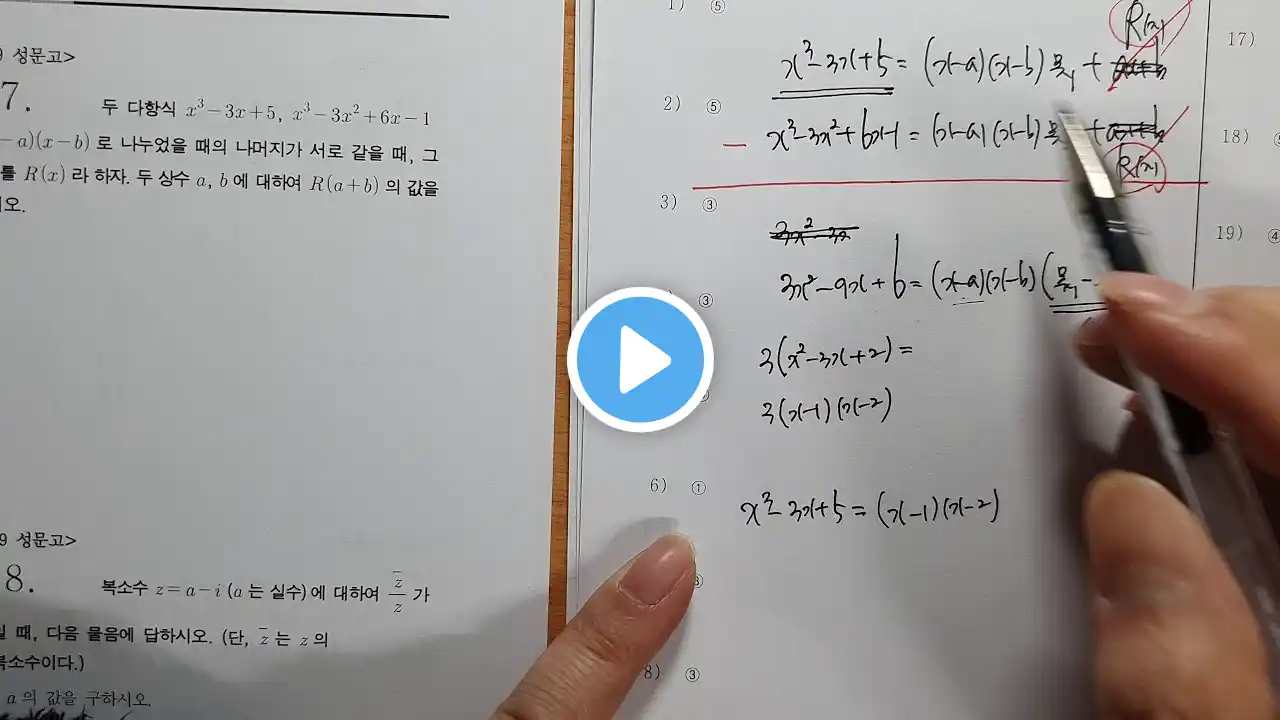 9 성문고>
7. 두 다항식 x³−3x+5, x³−3x²+6x−1
−a)(x−b)로 나누었을 때의 나머지가 서로 같을 때, 그
를 R(x)라 하자. 두 상수 a, b에 대하여 R(a+b)의 값을
시오.
9 성문고>
8. 복소수 z=a−i (a는 실수)에 대하여 z̄/z 가
일 때, 다음 물음에 답하시오. (단, z̄는 z의
복소수이다.)
a의 값을 구하시오.
1) ⑤
2) ⑤
3) ③
③
6) ①
8) ③
17)
18)
19) ④
R(x)
x³−3x+5=(x−a)(x−b)몫₁+
x³−3x²+6x−1=(x−a)(x−b)몫 +
R(x)
−
3x²−3x
3x²−9x+6=(x−a)(x−b)(몫₁−
3(x²−3x+2)=
3(x−1)(x−2)
x³−3x+5=(x−1)(x−2)